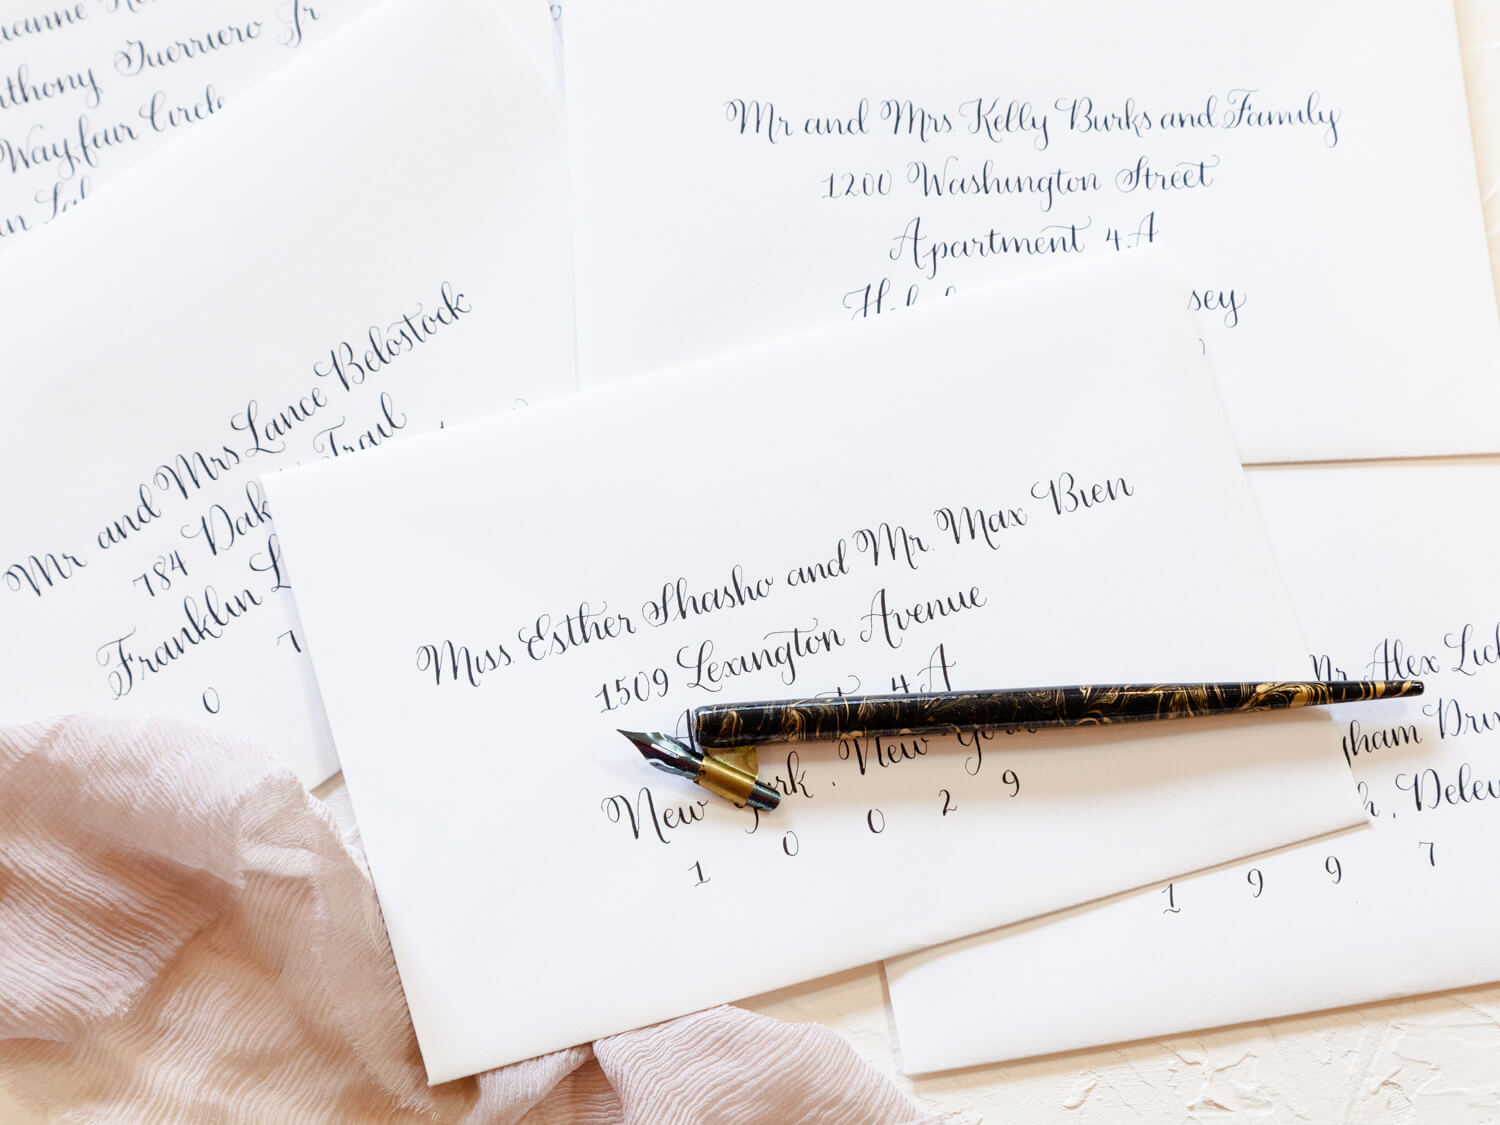 Anthony Guerriero Jr.
Wayfair Circle
Mr and Mrs Kelly Burks and Family
1200 Washington Street
Apartment 4A
Mr and Mrs Lance Belostock
784 Trail
Franklin
7
0
Miss Esther Shasho and Mr. Max Bien
1509 Lexington Avenue
4A
New York, New York
1 0 0 2 9
Mr Alex
1 9 9 7